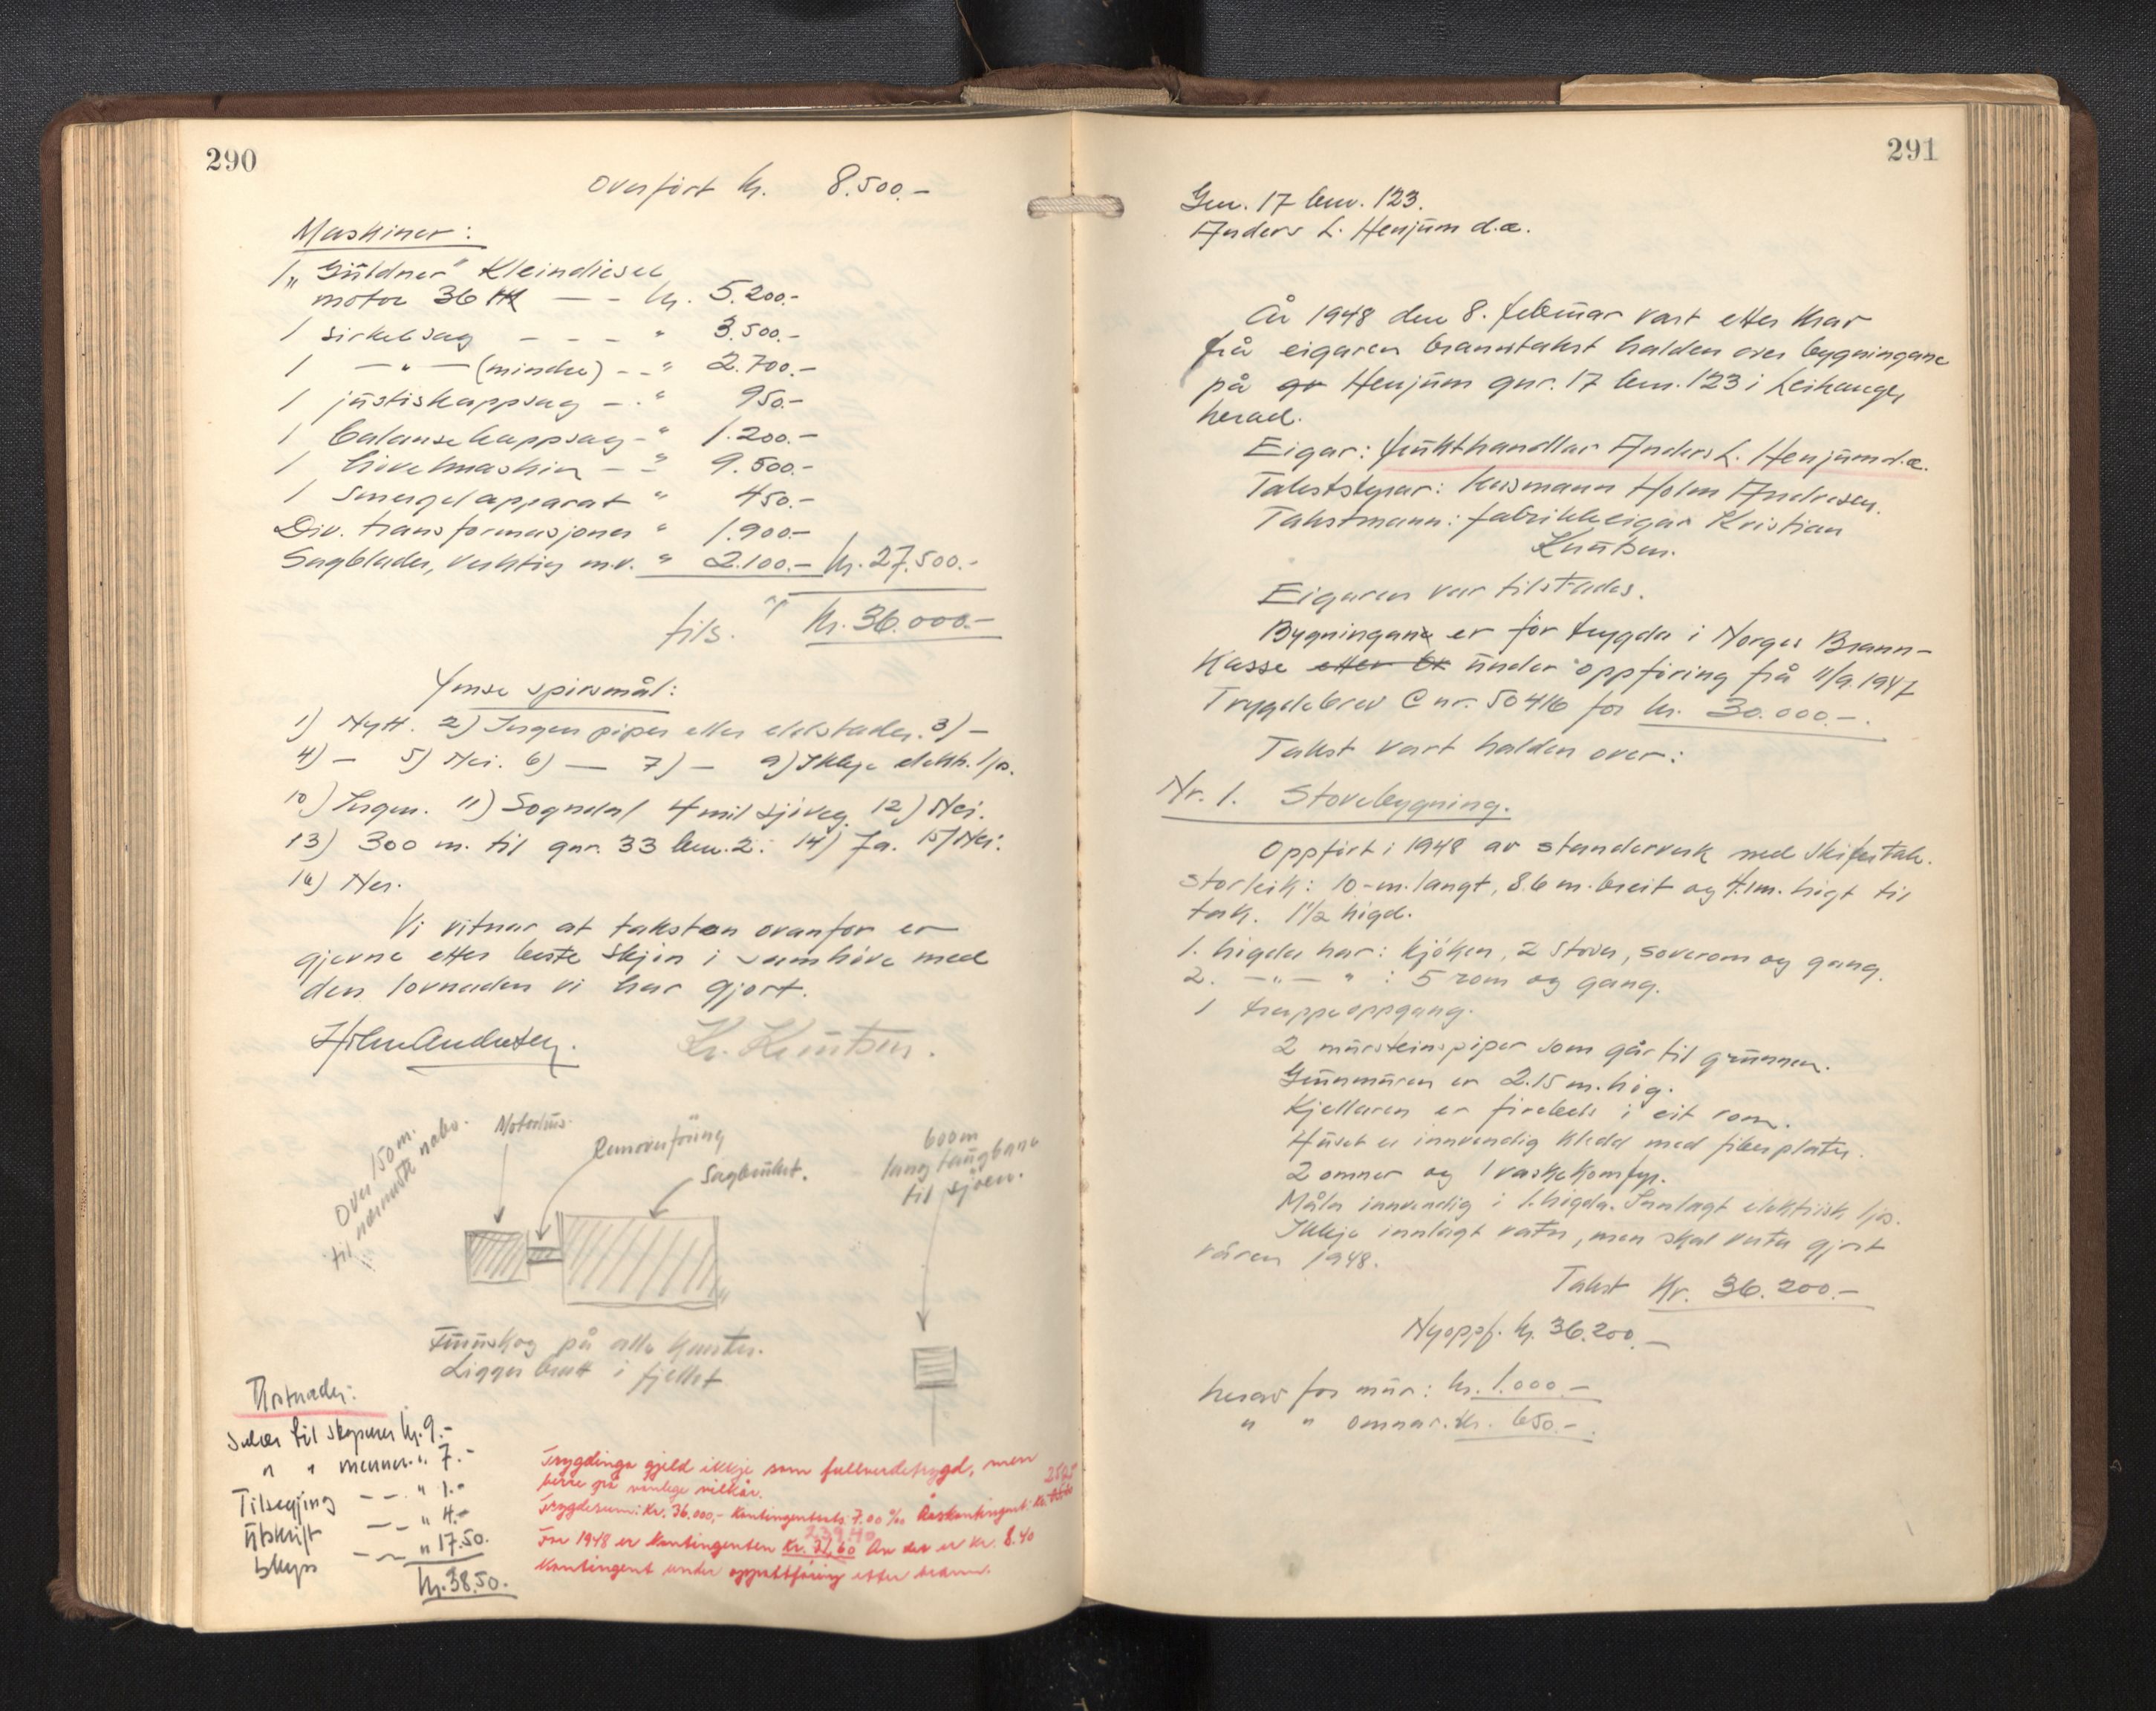 290
Overført kr. 8.500.-
Maskiner:
1 „Güldner" Kleindiesel
motor 36 HK — - kr. 5.200.-
1 sirkelsag - - - " 3.500.-
1 — " — (mindre) - - " 2.700.-
1 justiskappsag - . " 950.-
1 balansekappsag - " 1.200.-
1 hövelmaskin - - " 9.500.-
1 Smergelapparat " 450.-
Div. transformasjoner " 1.900.-
Sagblader, verktöy m.v. " 2.100.- kr. 27.500.-
tils. kr. 36.000.-
Ymse spörsmål:
1) Nytt. 2) Ingen piper eller eldstader. 3) -
4) - 5) Nei. 6) — 7) - 9) Ikkje elektr. ljos.
10) Ingen. 11) Sogndal 4 mil sjöveg. 12) Nei.
13) 300 m. til gnr. 33 bnr. 2. 14) Ja. 15) Nei.
16) Nei.
Vi vitnar at taksten ovanfor er
gjevne etter beste skjön i samhöve med
den lovnaden vi har gjort.
Holm Andresen. Kr. Knutsen.
Over 150 m.
til næraste nabo.
Motorhus.
Removerföring
Sagbruket.
600 m
lang taugbane
til sjöen.
Furuskog på alle kanter.
Ligger bratt i fjellet
Kostnader:
Salær til skipener kr. 9.-
" " mennen. " 7.-
Tilsegjing - - " 1.-
Utskrift - - " 4.-
Skyss - - " 17.50.
kr. 38.50.
Trygdinga gjeld ikkje som fullverdetrygd, men
berre på vanlege vilkår.
Trygdesum: Kr. 36.000,- Kontingentsats 7.00 ‰ Årskontingent: Kr.
239.40
For 1948 er kontingenten Kr. 31,60 Av det er kr. 8.40
kontingent under oppattföring etter brann.
291
Gnr. 17 bnr. 123.
Anders L. Henjum d.æ.
År 1948 den 8. februar vart etter krav
frå eigaren branntakst halden over bygningane
på gr Henjum gnr. 17 bnr. 123 i Leikanger
herad.
Eigar: frukthandlar Anders L. Henjum d.æ.
Takststyrar: lensmann Holm Andresen.
Takstmann: fabrikkeigar Kristian
Knutsen.
Eigaren var tilstades.
Bygningane er för trygda i Norges Brann-
kasse etter br under oppföring frå 11/9. 1947
Trygdebrev C nr. 50416 for kr. 30.000.-.
Takst vart halden over:
Nr. 1. Stovebygning.
Oppfört i 1948 av standerverk med skifertak.
Storleik: 10 - m. langt, 8.6 m. breit og 4.1 m. högt til
tak. 1 1/2 högd.
1. högda har: kjöken, 2 stover, soverom og gang.
2. - " - " : 5 rom og gang.
1 trappeoppgang.
2 mursteinspiper som går til grunnen.
Grunnmuren er 2.15 m. hög.
Kjellaren er firebels i eit rom.
Huset er innvendig kledd med fiberplater.
2 omner og 1 vaskekomfyr.
Måla innvendig i 1. högda. Innlagt elektrisk ljos.
Ikkje innlagt vatn, men skal verta gjort
våren 1948.
Takst Kr. 36.200.-
Nyoppf. kr. 36.200.-
herav for mur: kr. 1.000.-
" " omnar. kr. 650.-.